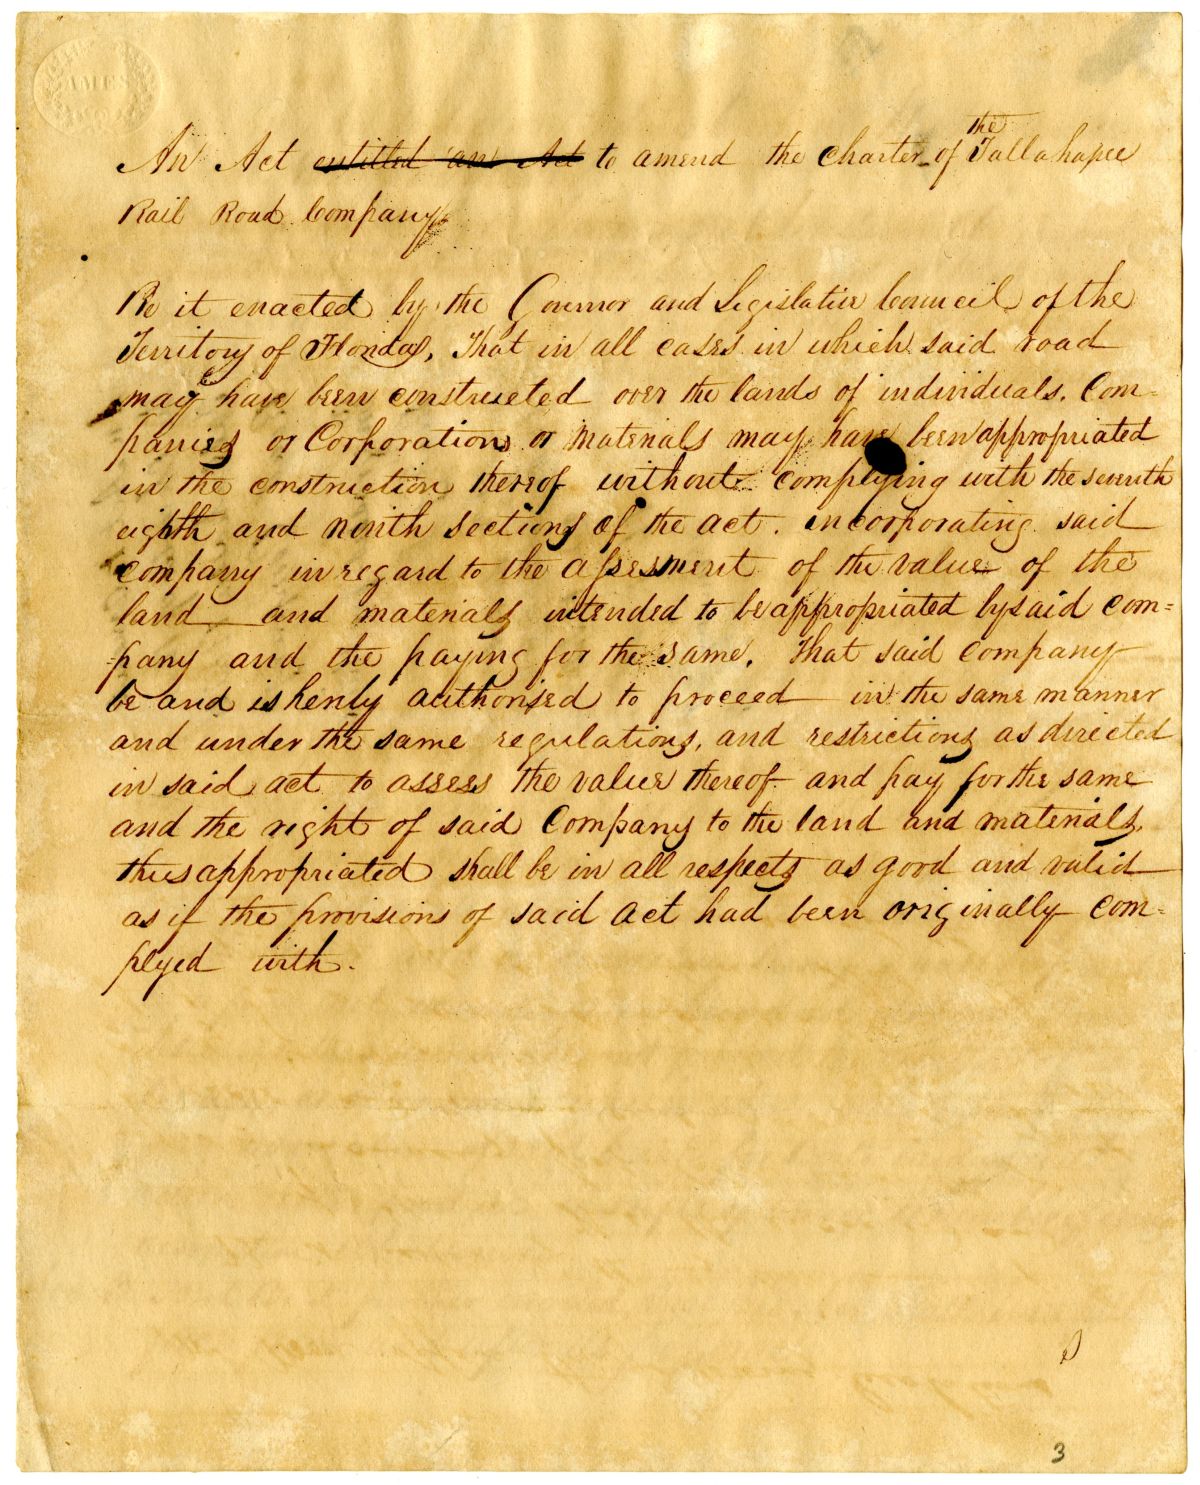 AMES
An Act ~~entitled an Act~~ to amend the charter of the Tallahassee
Rail Road Company
Be it enacted by the Governor and Legislative Council of the
Territory of Florida, That in all cases in which said road
may have been constructed over the lands of individuals, Com=
panies or Corporations or materials may have been appropriated
in the construction thereof without complying with the seventh
eighth and ninth sections of the act. incorporating said
company in regard to the assessment of the value of the
land and materials intended to be appropriated by said com=
=pany and the paying for the same. That said company
be and is hereby authorised to proceed in the same manner
and under the same regulations, and restrictions as directed
in said act to assess the value thereof and pay for the same
and the right of said Company to the land and materials,
thus appropriated shall be in all respects as good and valid
as if the provisions of said act had been originally com=
plyed with.
3